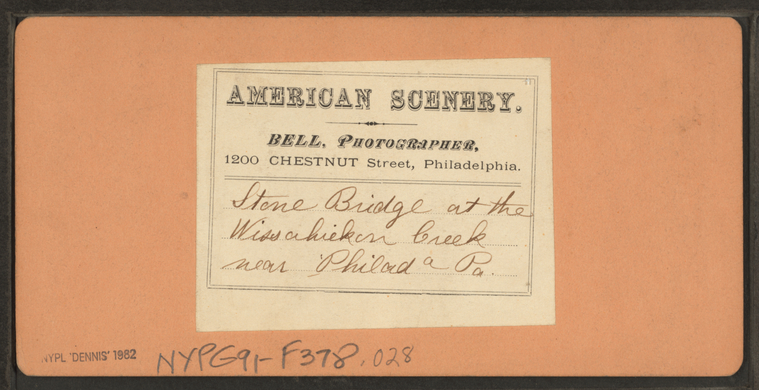 AMERICAN SCENERY.
BELL, PHOTOGRAPHER,
1200 CHESTNUT Street, Philadelphia.
Stone Bridge at the
Wissahickon Creek
near Philada Pa.
NYPL 'DENNIS' 1982
NYPG91-F378.028